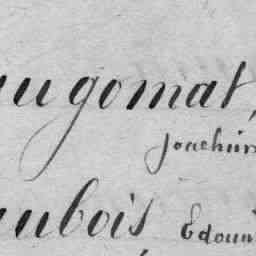 ugomat,
Joachim
ubois, Edoua